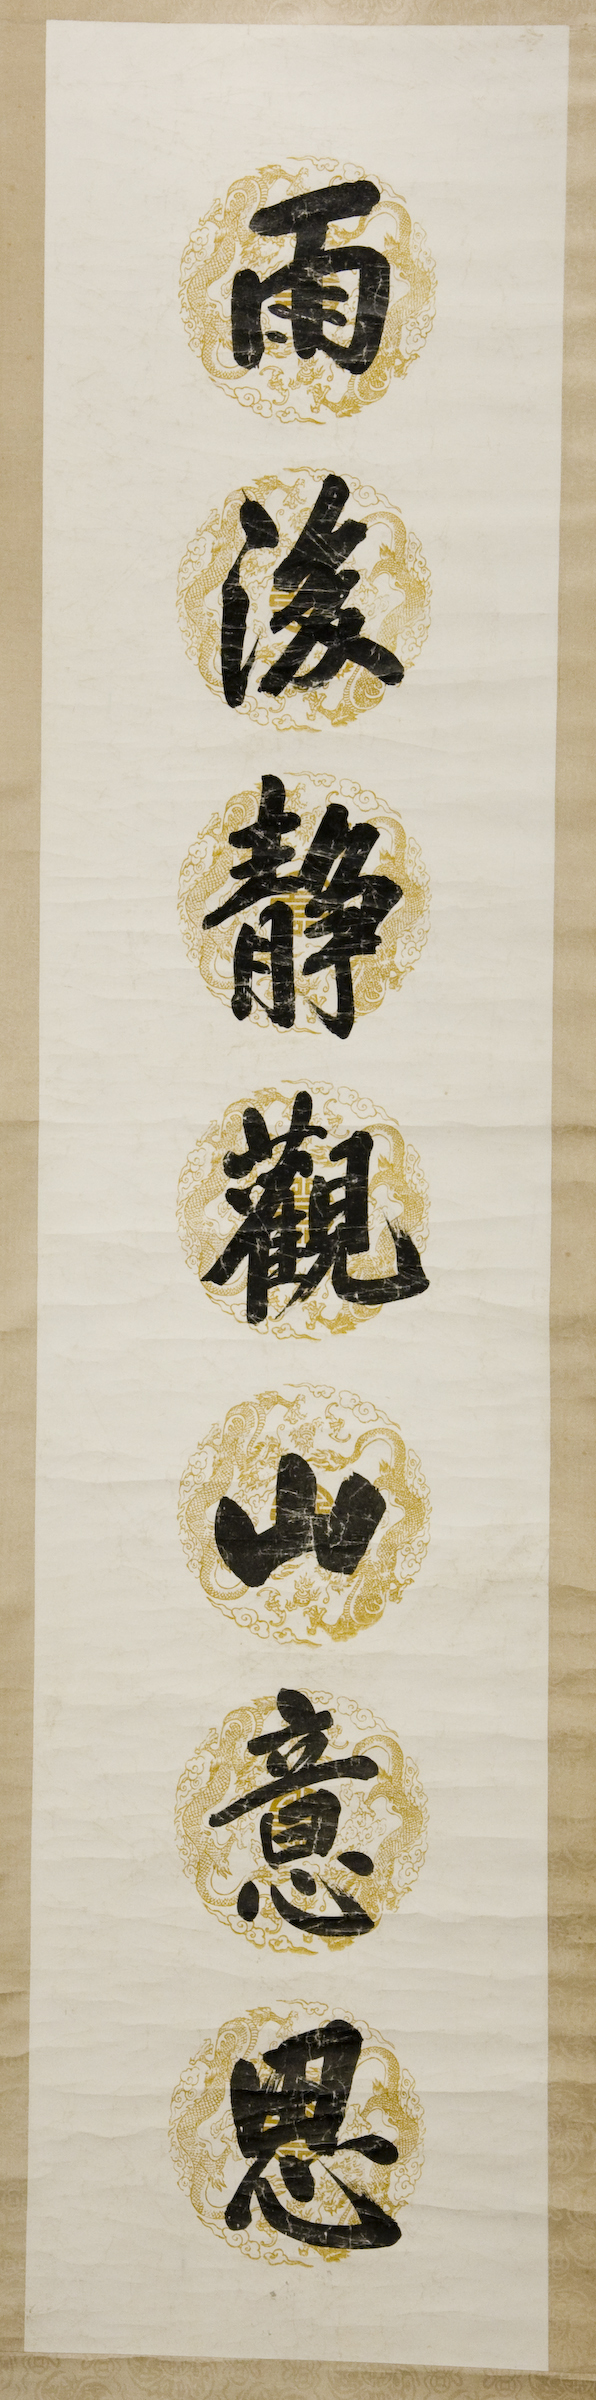 雨後静觀山意思